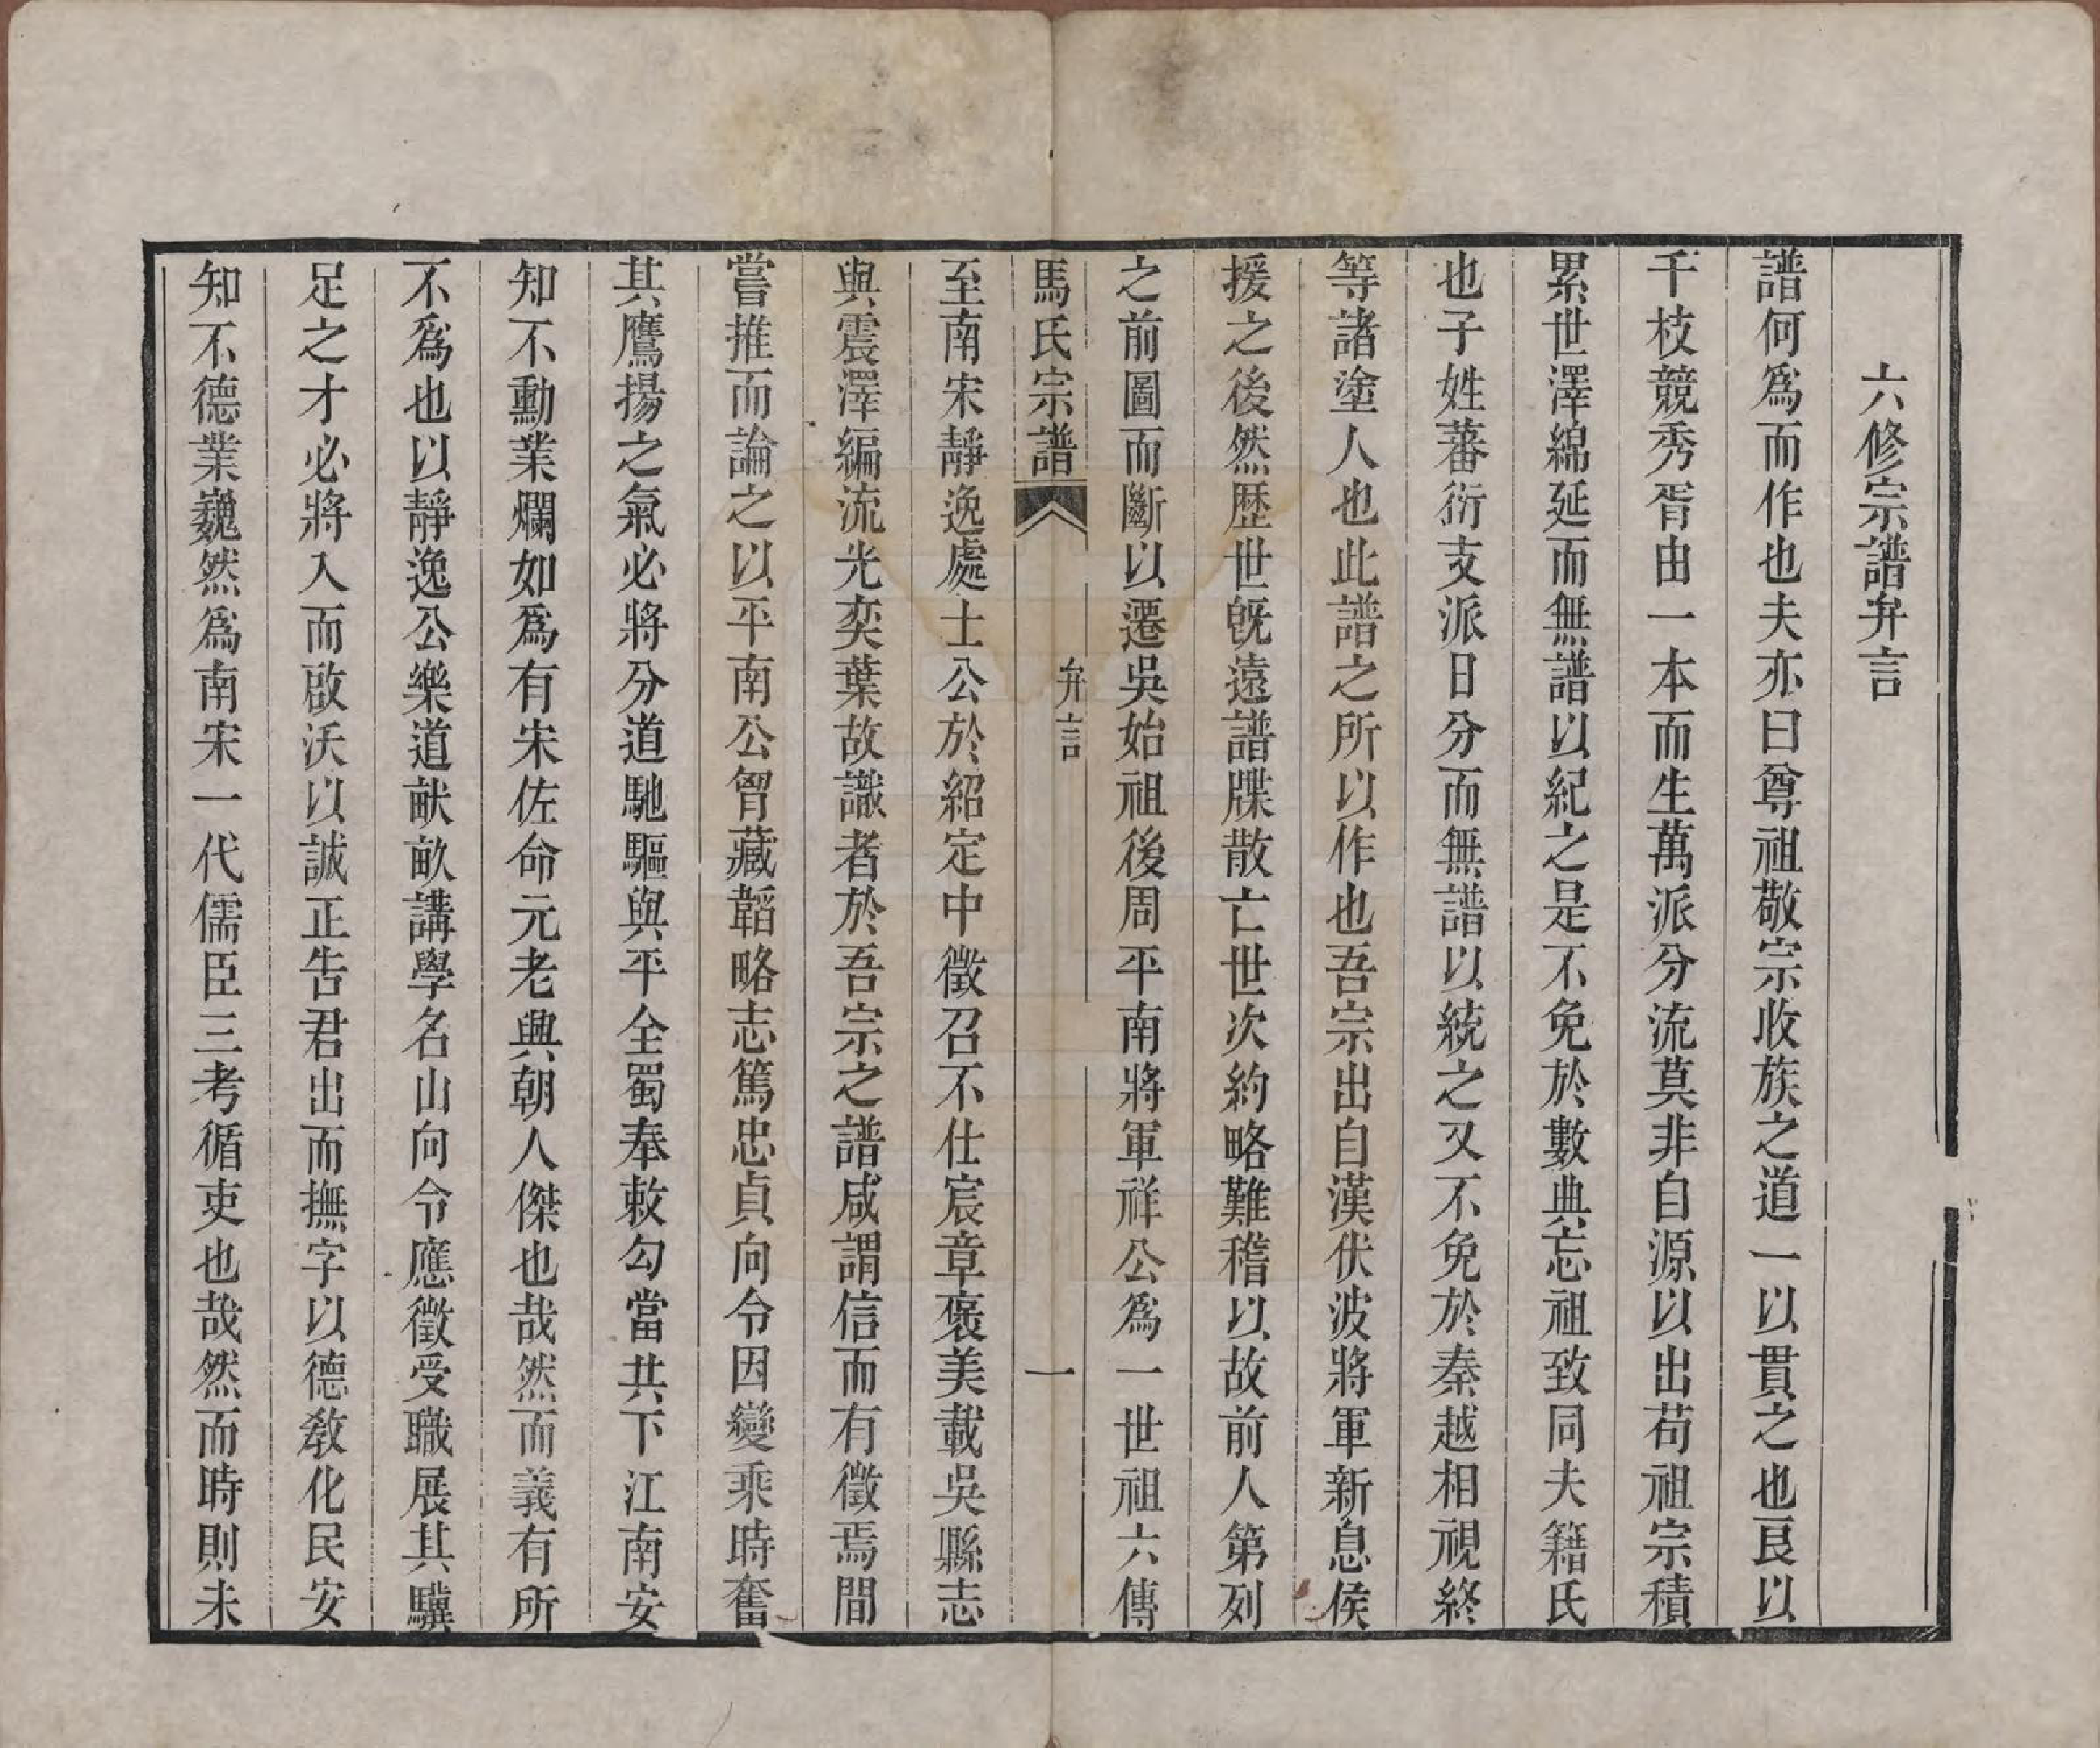 六修宗譜弁言
譜何爲而作也夫亦曰尊祖敬宗收族之道一以貫之也良以
千枝競秀胥由一本而生萬派分流莫非自源以出苟祖宗積
累世澤綿延而無譜以紀之是不免於數典忘祖致同夫籍氏
也子姓蕃衍支派日分而無譜以統之又不免於秦越相視終
等諸塗人也此譜之所以作也吾宗出自漢伏波將軍新息侯
援之後然歴世旣遠譜牒散亡世次約略難稽以故前人第列
之前圖而斷以遷吳始祖後周平南將軍祥公爲一世祖六傳
馬氏宗譜 弁言 一
至南宋靜逸處士公於紹定中徵召不仕宸章褒美載吳縣志
與震澤編流光奕葉故識者於吾宗之譜咸謂信而有徵焉間
嘗推而論之以平南公胷藏韜略志篤忠貞向令因變乘時奮
其鷹揚之氣必將分道馳驅與平全蜀奉敕勾當共下江南安
知不勳業爛如爲有宋佐命元老興朝人傑也哉然而義有所
不爲也以靜逸公樂道畎畝講學名山向令應徵受職展其驥
足之才必將入而啟沃以誠正告君出而撫字以德敎化民安
知不德業巍然爲南宋一代儒臣三考循吏也哉然而時則未